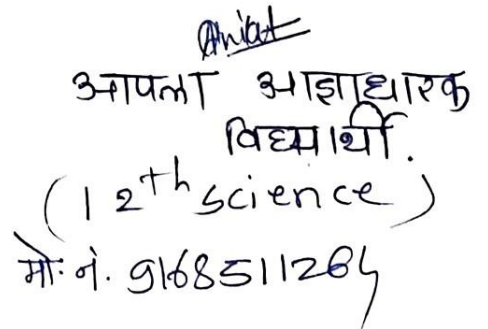 Aniket
आपला आज्ञाधारक
विद्यार्थी.
(12th science)
मो. नं. 9168511264